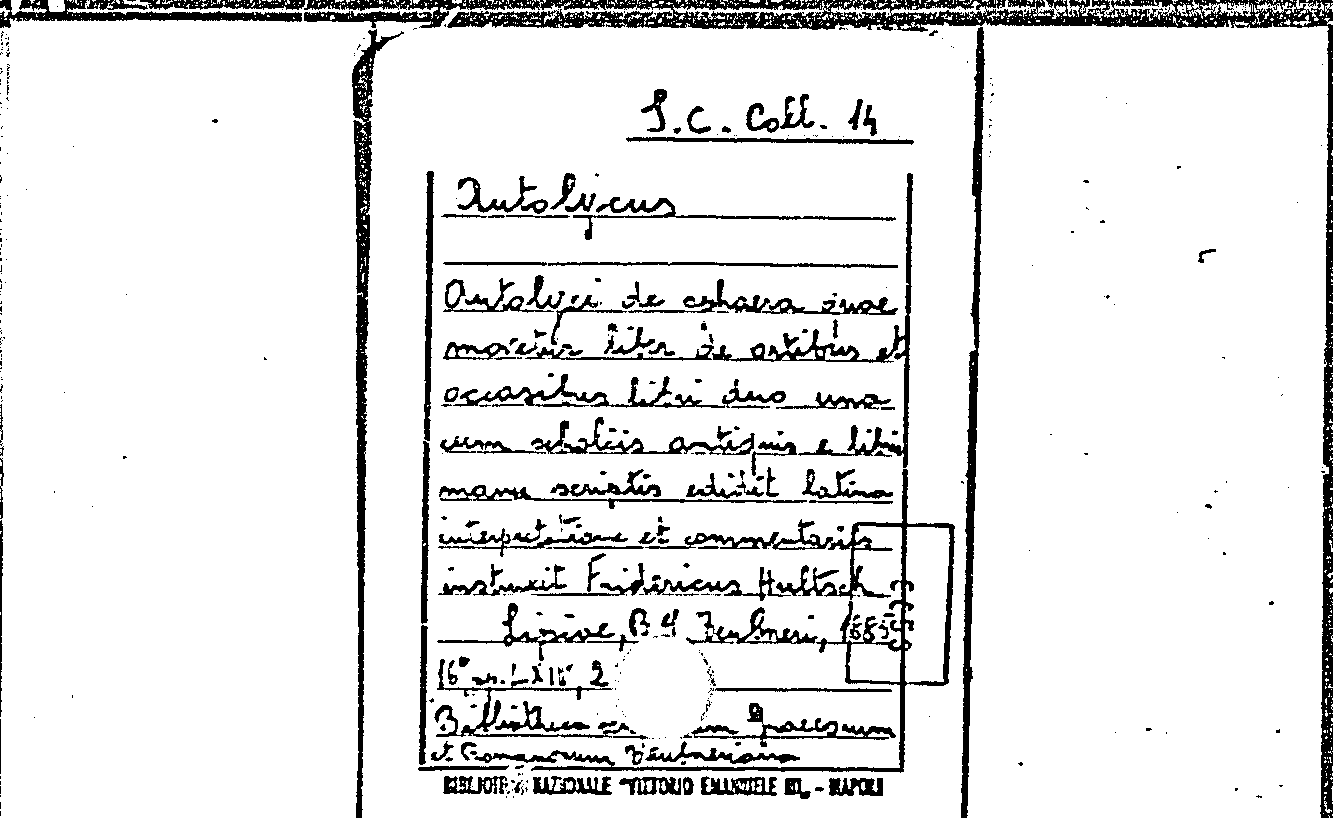 S.C. Coll. 14
Autolycus
Autolyci de sphaera quae
movetur liber de ortibus et
occasibus libri duo una
cum scholiis antiquis e libris
manu scriptis edidit latina
interpretatione et commentariis
instruxit Fridericus Hultsch
Lipsiae, B G Teubneri, 1885
16°, 2
Bibliotheca Graecorum
et Romanorum Teubneriana
BIBLIOTECA NAZIONALE "VITTORIO EMANUELE III" - NAPOLI